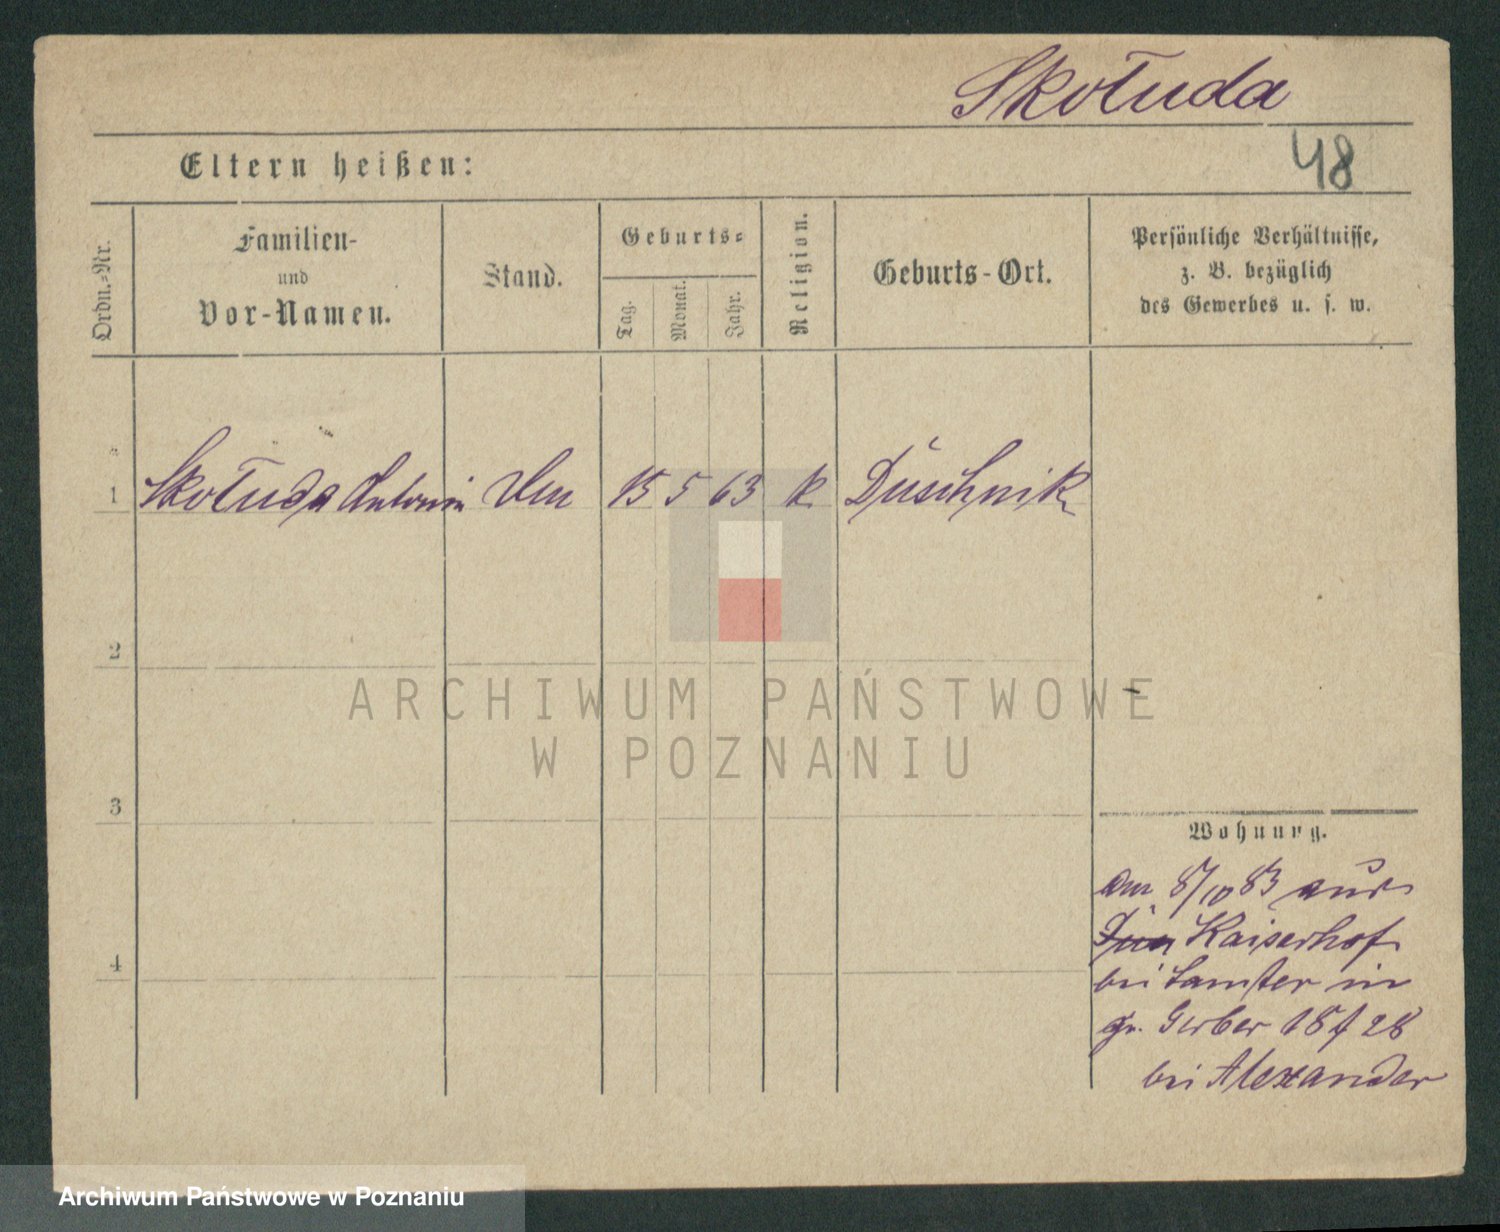 Skołuda
48
Eltern heißen:
Ordn.-Nr.
Familien-
und
Vor-Namen.
Stand.
Geburts-
Tag.
Monat.
Jahr.
Religion.
Geburts-Ort.
Persönliche Verhältnisse,
z. B. bezüglich
des Gewerbes u. s. w.
1 Skołuda Antonie 15 5 63 k Duschnik
2
ARCHIWUM PAŃSTWOWE
W POZNANIU
3
Wohnung.
am 8/10 83 aus
Kaiserhof
4
bei Samter in
gr. Gerber 18 28
bei Alexander
Archiwum Państwowe w Poznaniu